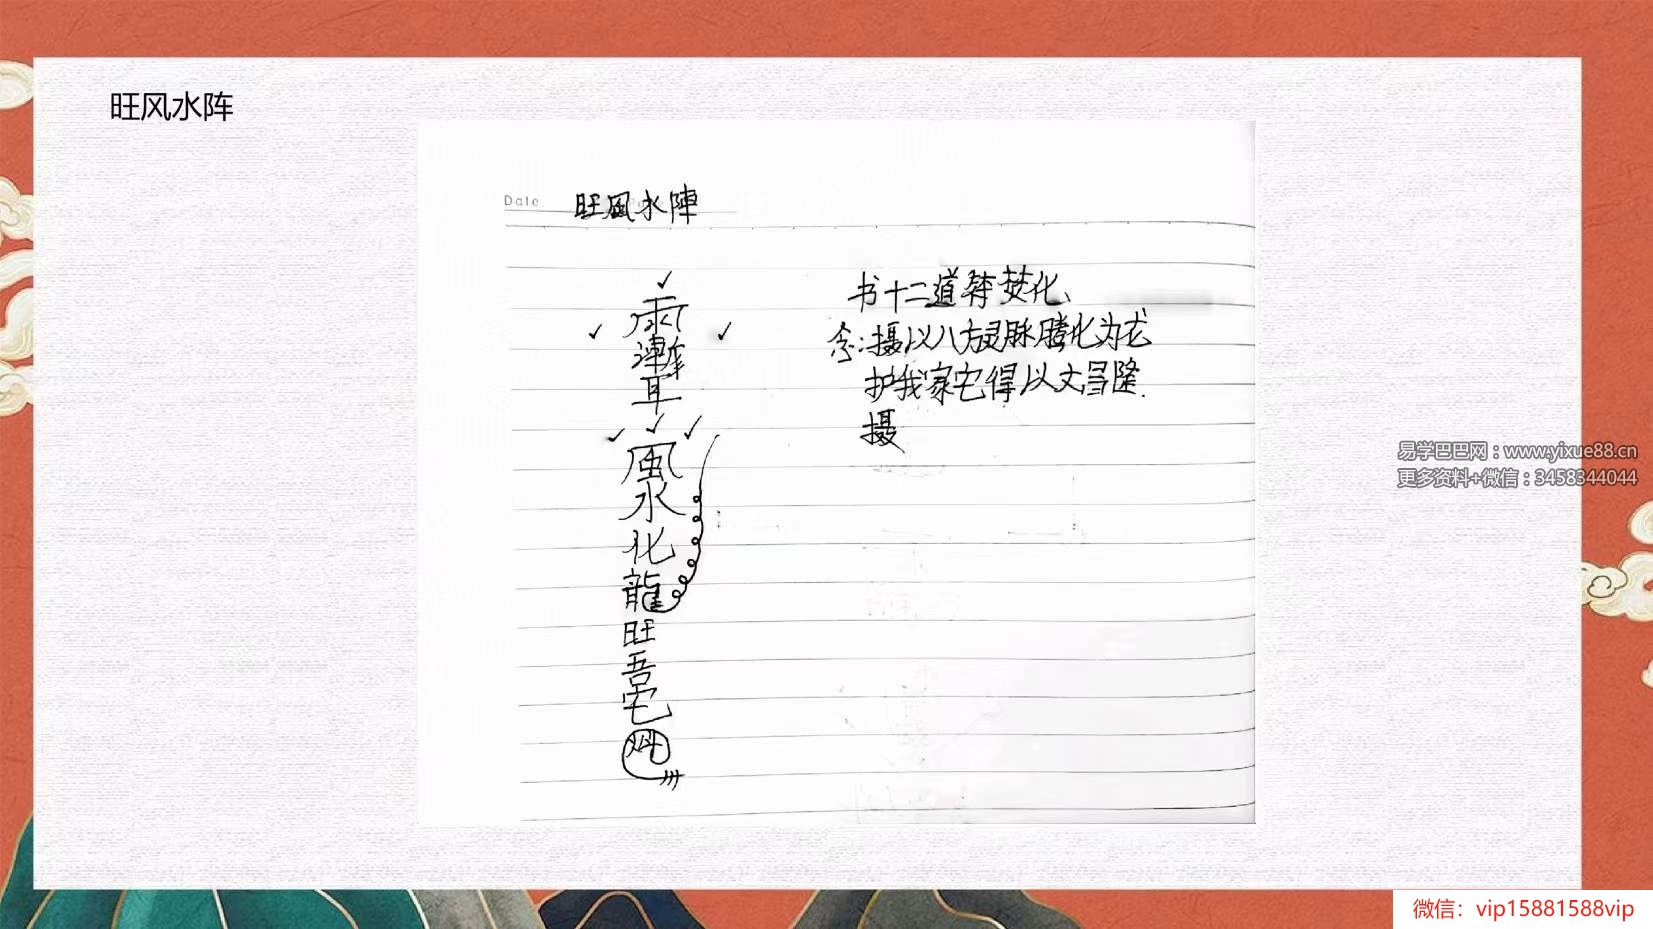 旺风水阵
Date
旺風水陣
書十二道符焚化、
念:摄以八方灵脉腾化为龙
护我家宅得以文昌隆.
摄
風
水
化
龍
旺
吾
宅
易学巴巴网：www.yixue88.cn
更多资料+微信：3458344044
微信：vip15881588vip